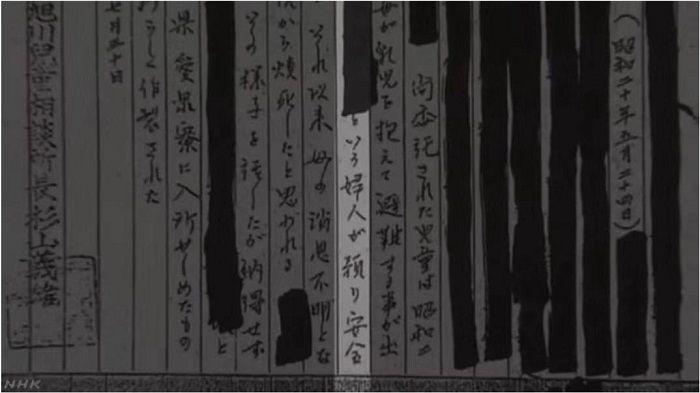 (昭和二十年五月二十四日)
尚委託された児童は昭和二
母が乳児を抱えて避難する事が出
という婦人が預り安全
いそれ以来母の消息不明とな
から焼死したと思われる
その様子を話したが納得せず
と
県愛泉寮に入所せしめたもの
作製された
七月三十日
旭川児童相談所長杉山義雄
NHK